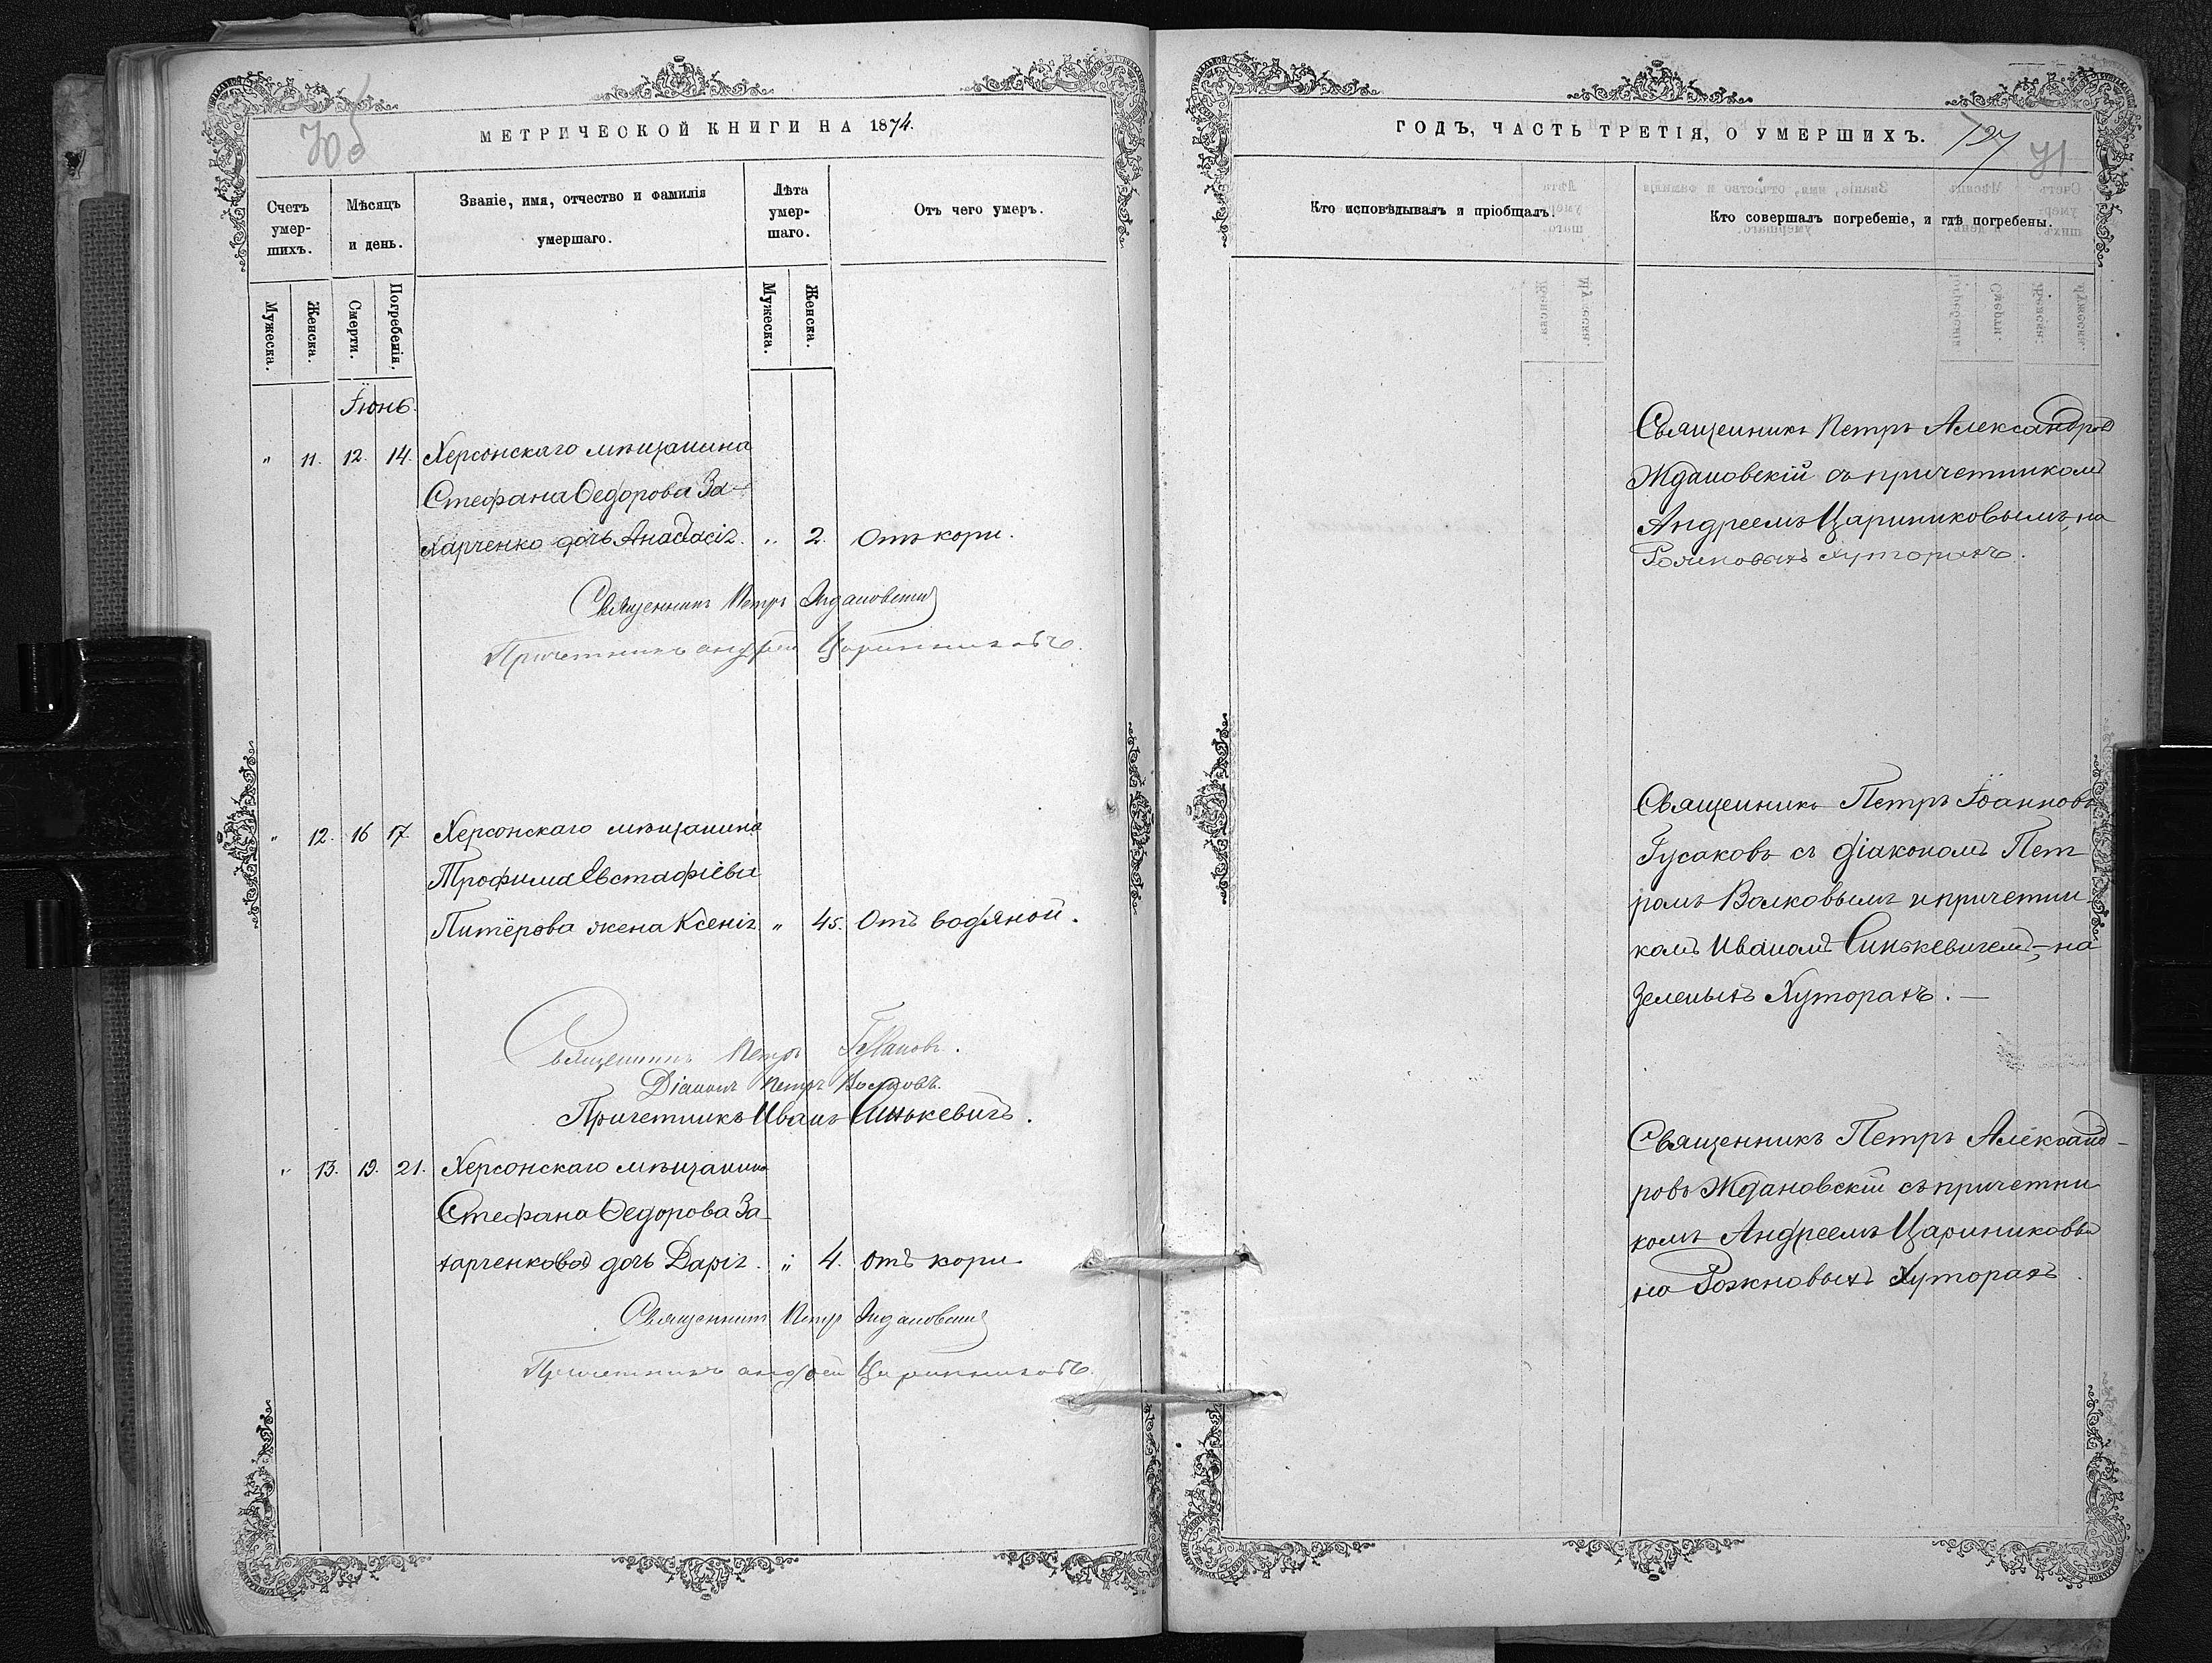 МЕТРИЧЕСКОЙ КНИГИ НА 1874.
Счетъ умершихъ.
Мѣсяцъ и день.
Званіе, имя, отчество и фамилія умершаго.
Лѣта умершаго.
Отъ чего умеръ.
Мужеска.
Женска.
Смерти.
Погребенія.
Мужеска.
Женска.
Іюнь.
" 11. 12. 14. Херсонскаго мѣщанина
Стефана Ѳедорова За-
харченко дочь Анастасія. " 2. Отъ кори.
Священникъ Петръ Ждановскій
Причетникъ Андрей Цариниковъ.
" 12. 16 17. Херсонскаго мѣщанина
Трофима Евстафіева
Питёрова жена Ксенія " 45. Отъ водяной.
Священникъ Петръ Гусаковъ.
Діаконъ Петръ Волковъ.
Причетникъ Иванъ Синькевичъ.
" 13. 19. 21. Херсонскаго мѣщанина
Стефана Ѳедорова За-
харченкова дочь Дарія. " 4. отъ кори
Священникъ Петръ Ждановскій
Причетникъ Андрей Цариниковъ.
ГОДЪ, ЧАСТЬ ТРЕТІЯ, О УМЕРШИХЪ.
71
Кто исповѣдывалъ и пріобщалъ.
Кто совершалъ погребеніе, и гдѣ погребены.
Священникъ Петръ Александровъ
Ждановскій съ причетникомъ
Андреемъ Цариниковымъ, на
Рожновыхъ хуторахъ.
Священникъ Петръ Іоанновъ
Гусаковъ съ діакономъ Пет
ромъ Волковымъ и причетни
комъ Иваномъ Синькевичемъ, – на
Зеленыхъ Хуторахъ. —
Священникъ Петръ Александ-
ровъ Ждановскій съ причетни
комъ Андреемъ Цариниковы
на Рожновыхъ Хуторахъ.